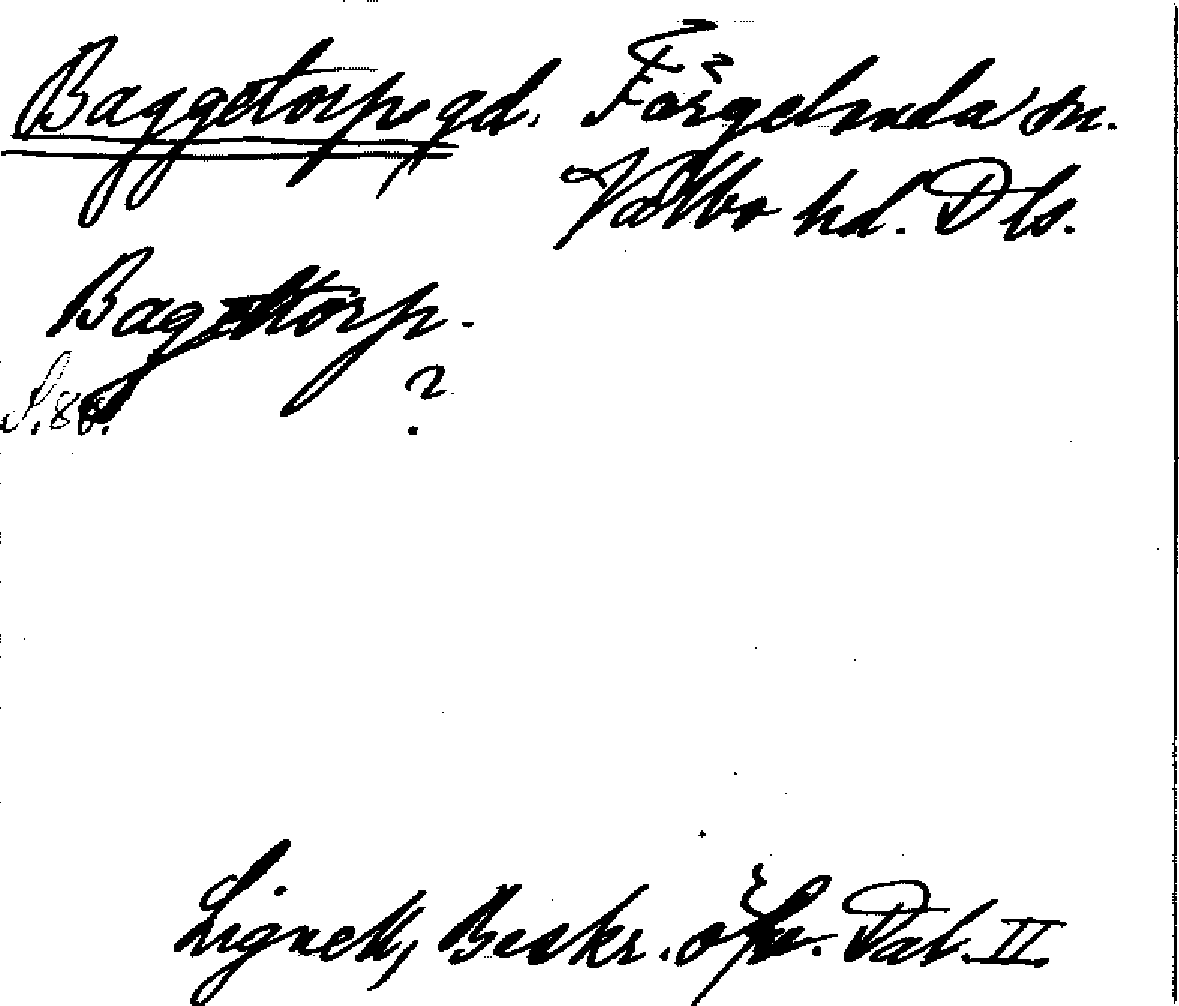 Baggetorp, gd. Färgelanda sn.
Valbo hd. Dls.
Bagetorp.
S. 88. ?
Lignell, Beskr. öfv. Dal. II.